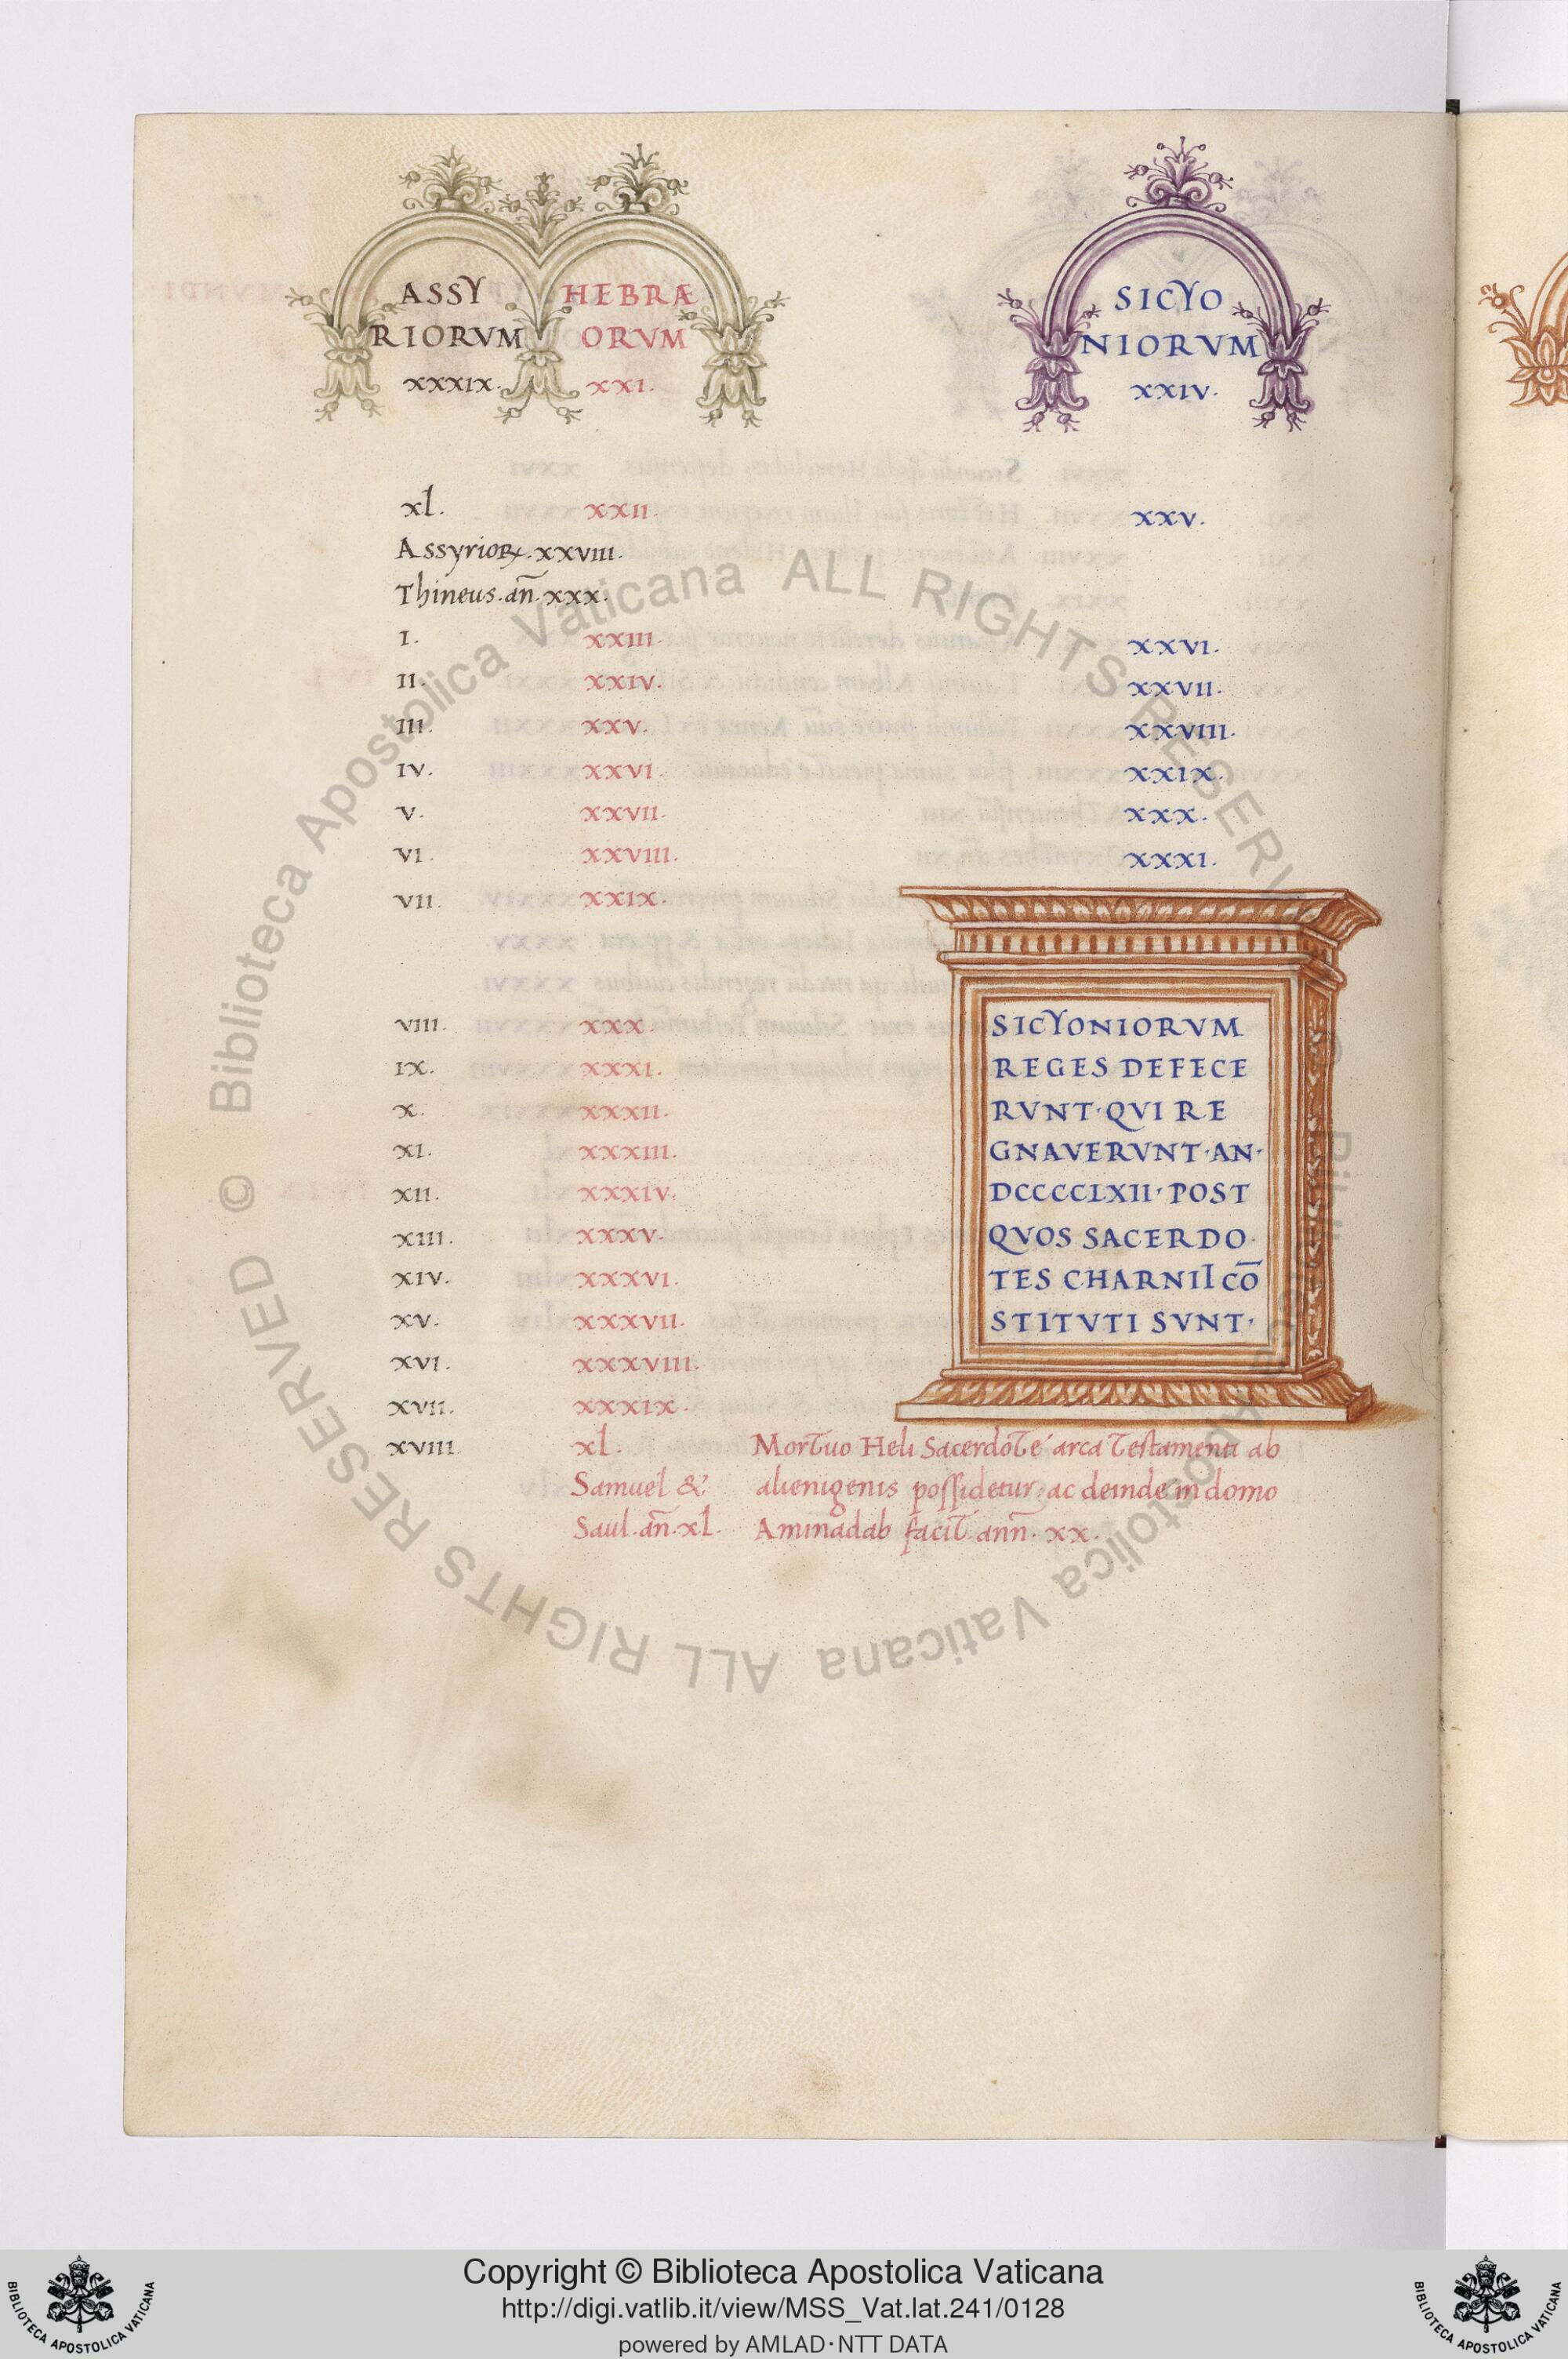 ASSY HEBRÆ SICYO
RIORVM ORVM NIORVM
XXXIX. XXI. XXIV.
xl. XXII. XXV.
Assyrioꝝ. XXVIII.
Thineus. an̄. XXX.
I. XXIII. XXVI.
II. XXIV. XXVII.
III. XXV. XXVIII.
IV. XXVI. XXIX.
V. XXVII. XXX.
VI. XXVIII. XXXI.
VII. XXIX.
VIII. XXX.
IX. XXXI.
X. XXXII.
XI. XXXIII.
XII. XXXIV.
XIII. XXXV.
XIV. XXXVI.
XV. XXXVII.
XVI. XXXVIII.
XVII. XXXIX.
XVIII xl.
SICYONIORVM
REGES DEFECE
RVNT· QVI RE
GNAVERVNT· AN·
DCCCCLXII· POST
QVOS SACERDO·
TES CHARNII CŌ
STITVTI SVNT·
Samuel &
Saul. an̄. xl.
Mortuo Heli Sacerdote arca testamenti ab
alienigenis possidetur. ac deinde in domo
Aminadab facit ann̄. XX.
© Biblioteca Apostolica Vaticana ALL RIGHTS RESERVED
Copyright © Biblioteca Apostolica Vaticana
http://digi.vatlib.it/view/MSS_Vat.lat.241/0128
powered by AMLAD·NTT DATA
BIBLIOTECA APOSTOLICA VATICANA
BIBLIOTECA APOSTOLICA VATICANA